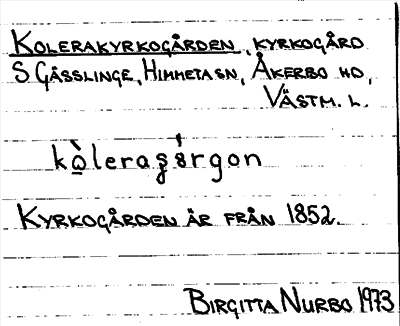 KOLERAKYRKOGÅRDEN, KYRKOGÅRD
S GÄSSLINGE, HIMMETA SN, ÅKERBO HD,
VÄSTM. L.
kòleragárgon
KYRKOGÅRDEN ÄR FRÅN 1852.
BIRGITTA NURBO 1973